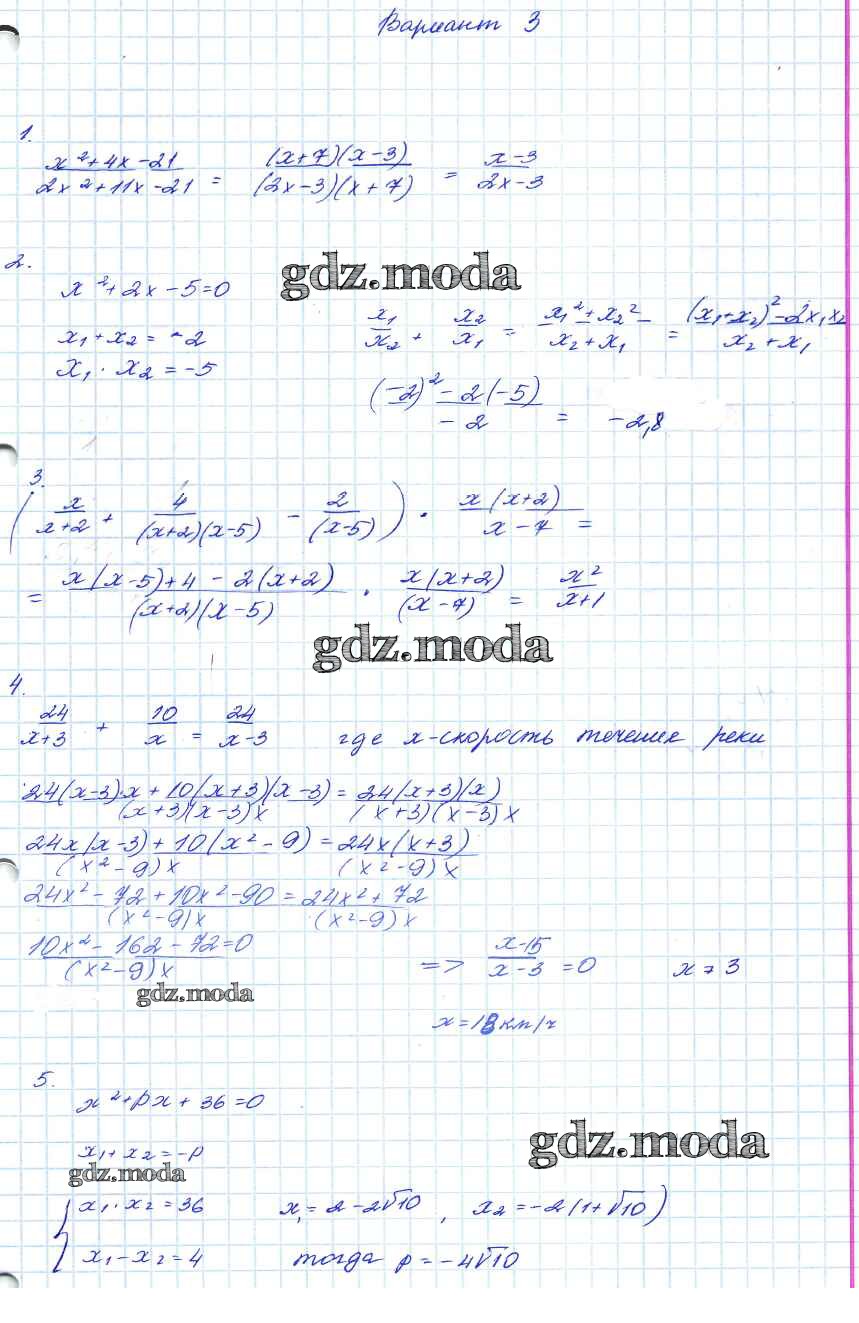 Вариант 3
1.
(x²+4x-21)/(2x²+11x-21) = ((x+7)(x-3))/((2x-3)(x+7)) = (x-3)/(2x-3)
2.
gdz.moda
x²+2x-5=0
x₁+x₂=-2
x₁·x₂=-5
x₁/x₂ + x₂/x₁ = (x₁²+x₂²)/(x₂+x₁) = ((x₁+x₂)²-2x₁x₂)/(x₂+x₁)
((-2)²-2(-5))/(-2) = -2,8
3.
(x/(x+2) + 4/((x+2)(x-5)) - 2/(x-5)) · (x(x+2))/(x-7) =
= (x(x-5)+4-2(x+2))/((x+2)(x-5)) · (x(x+2))/(x-7) = x²/(x+1)
gdz.moda
4.
24/(x+3) + 10/x = 24/(x-3) где x-скорость течения реки
(24(x-3)x+10(x+3)(x-3))/((x+3)(x-3)x) = (24(x+3)(x))/((x+3)(x-3)x)
(24x(x-3)+10(x²-9))/((x²-9)x) = (24x(x+3))/((x²-9)x)
(24x²-72+10x²-90)/((x²-9)x) = (24x²+72)/((x²-9)x)
(10x²-162-72=0)/((x²-9)x) => (x-15)/(x-3) =0 x≠3
gdz.moda
x=18км/ч
5.
x²+px+36=0
gdz.moda
x₁+x₂=-p
gdz.moda
{ x₁·x₂=36 x₁=2-2√10, x₂=-2(1+√10)
x₁-x₂=4 тогда p=-4√10